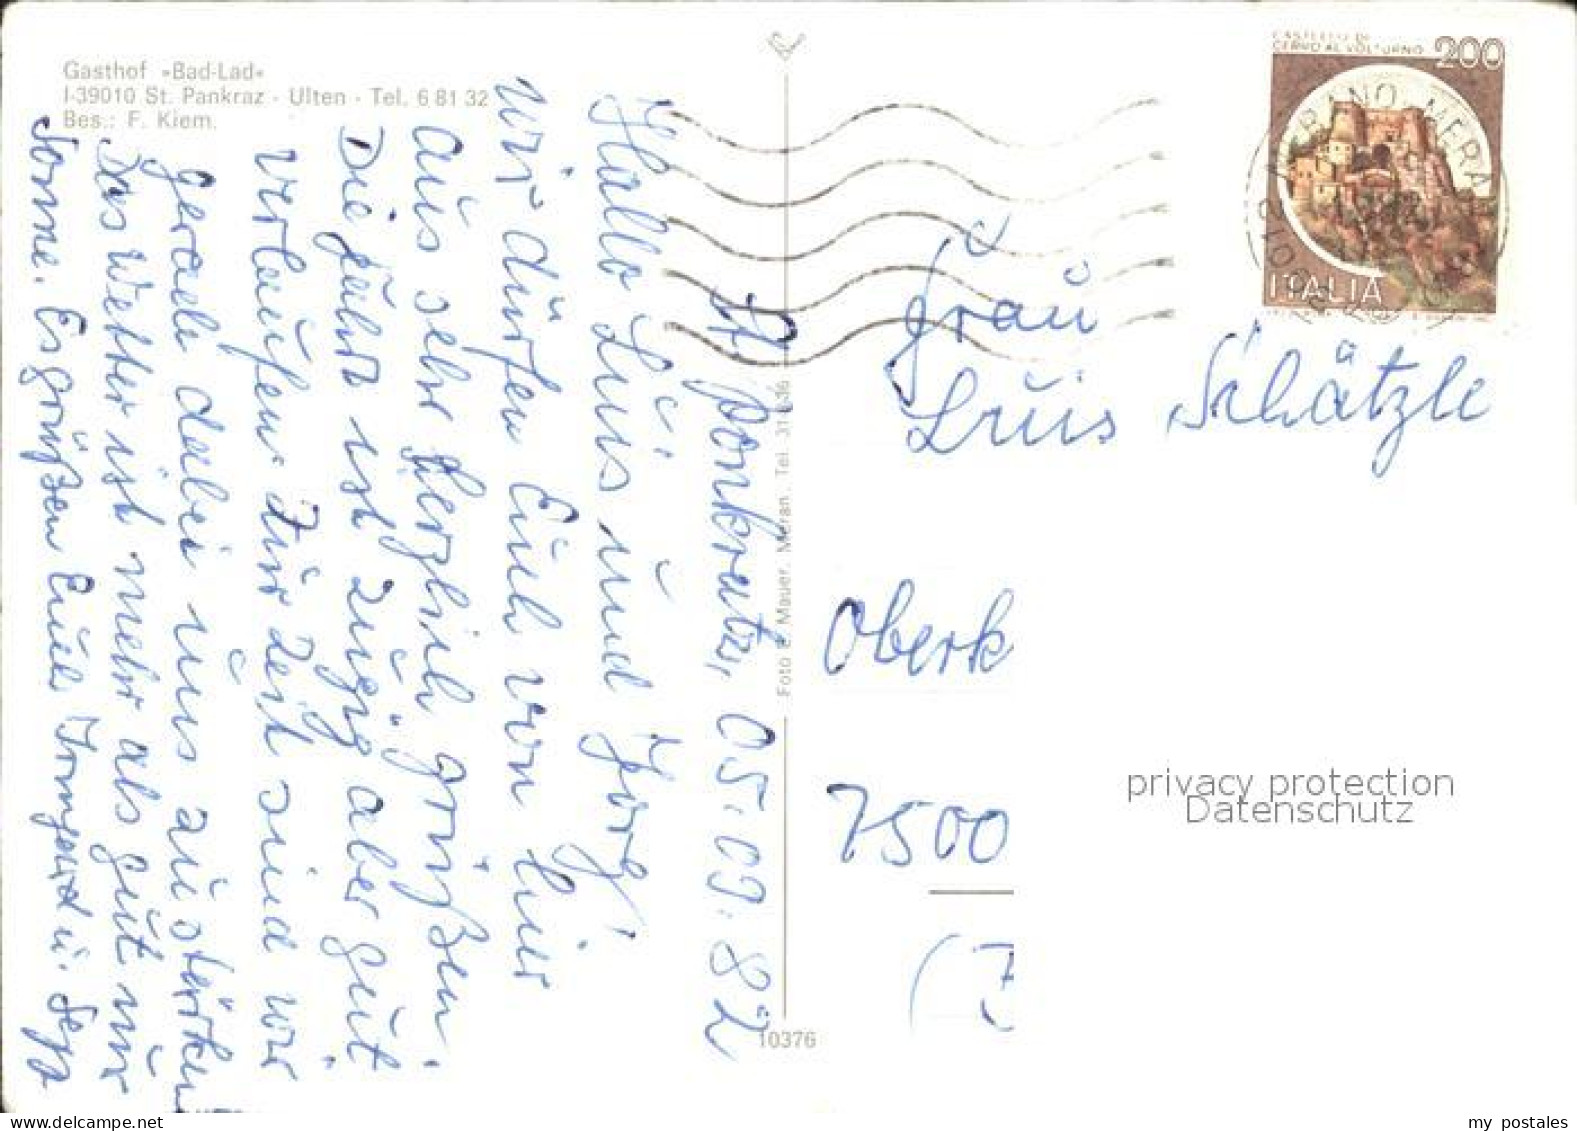 Gasthof »Bad-Lad«
I-39010 St. Pankraz - Ulten - Tel. 6 81 32
Bes.: F. Kiem.
St. Pankratz, 05.09.82
Hallo Luis und Jörg!
Wir dürfen Euch von hier
aus sehr herzlich grüßen.
Die Fahrt ist zügig aber gut
verlaufen. Zur Zeit sind wir
gerade dabei uns zu stärken
Das Wetter ist mehr als gut nur
Sonne. Es grüßen Euch Irmgard u. Sepp
Foto E. Mauer, Meran, Tel.
10376
CASTELLO DI
CERRO AL VOLTURNO 200
ITALIA
MERANO MERA
Frau
Luis Schätzle
Oberk
7500
privacy protection
Datenschutz
my postales